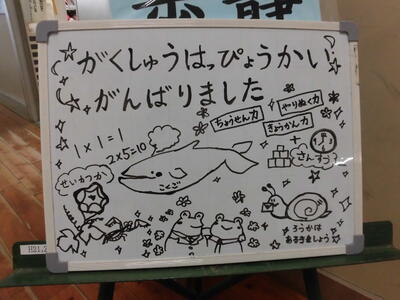 がくしゅうはっぴょうかい
がんばりました
ちょうせん力
やりぬく力
きょうかん力
1×1=1
2×5=10
せいかつか
こくご
+
さんすう
ろうかは
あるきましょう